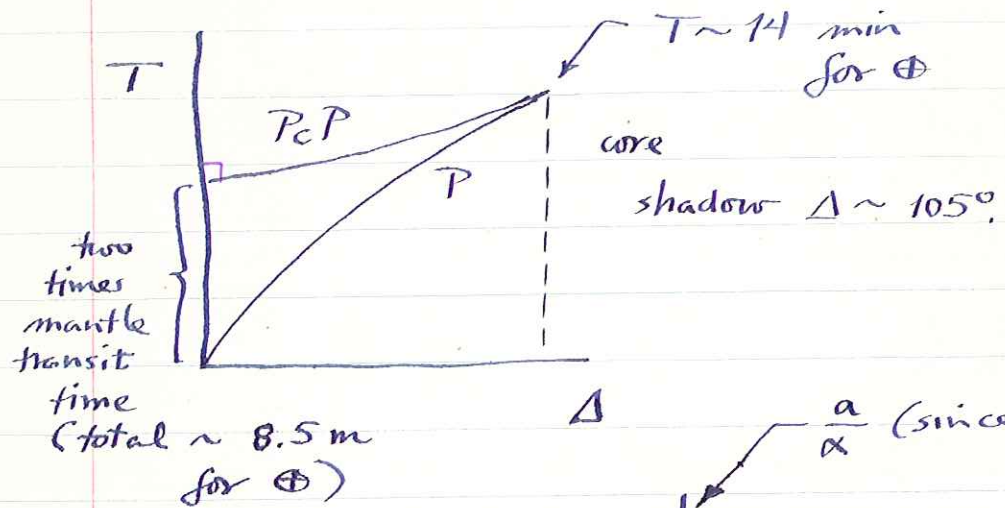 T ~ 14 min
for ⊕
T
PcP
core
P
shadow Δ ~ 105°.
two
times
mantle
transit
time
(total ~ 8.5 m
for ⊕)
Δ
a/α (since